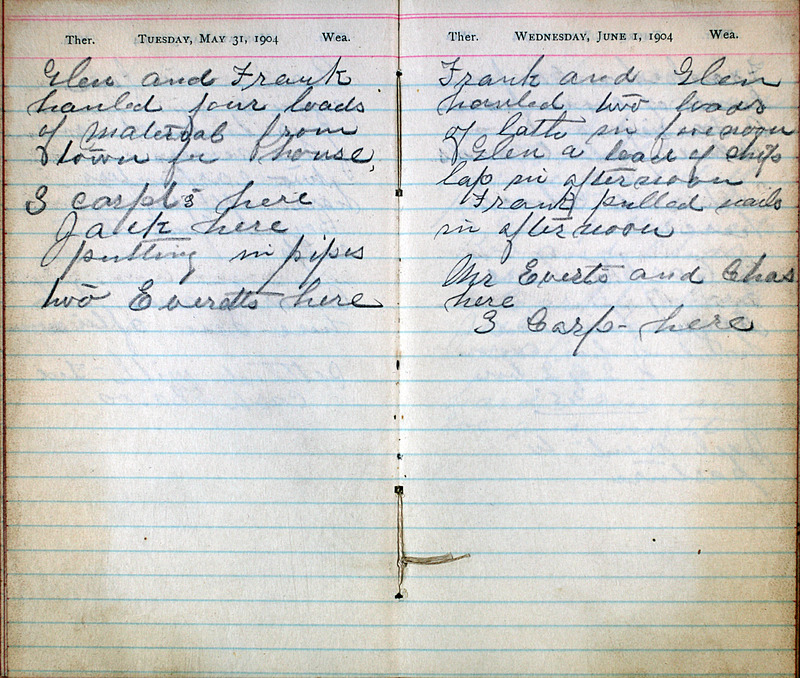 Ther. TUESDAY, MAY 31, 1904 Wea.
Glen and Frank
hauled four loads
of material from
town for house,
3 carpts here
Jack here
putting in pipes
two Everetts here
Ther. WEDNESDAY, JUNE 1, 1904 Wea.
Frank and Glen
hauled two loads
of lath in forenoon
& Glen a load of ship
lap in afternoon
Frank pulled nails
in afternoon
Mr Everts and Chas
here
3 Carp- here